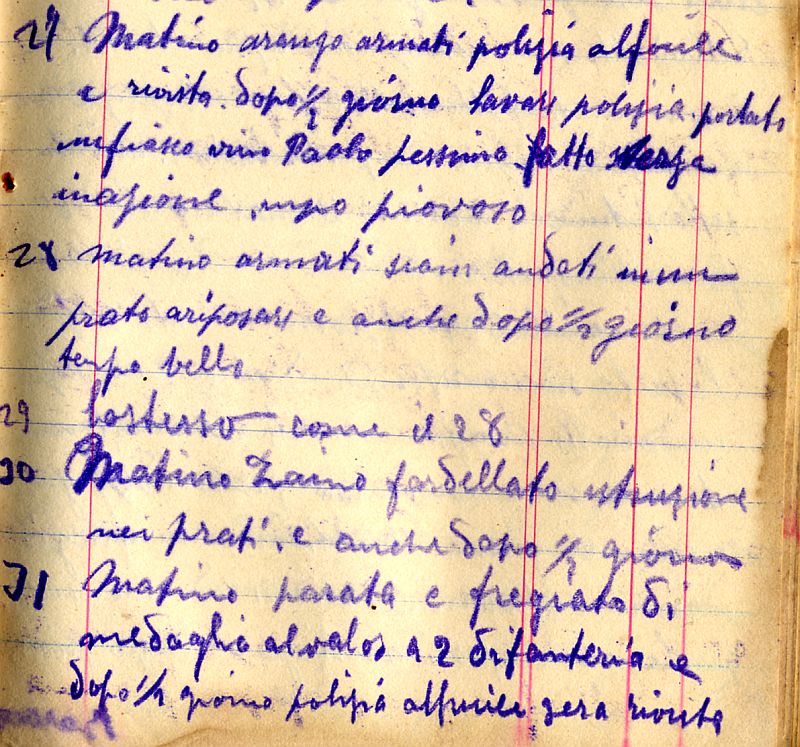 27 Matino arango armati polizia alfucile
e rivista. dopo 1/2 giorno lavarsi polizia. portato
fiasco vino Paolo pessimo. fatto
inazione, piovoso
28 Matino armati siam andati in un
prato ariposarsi e anche dopo 1/2 giorno
tempo bello
29 Lostesso come il 28
30 Matino Zaino fardellato istruzione
nei prati. e anche dopo 1/2 giorno
31 Matino parata e fregiato di
medaglio alvalor a 2 difanteria e
dopo 1/2 giorno polizia alfucile sera rivista